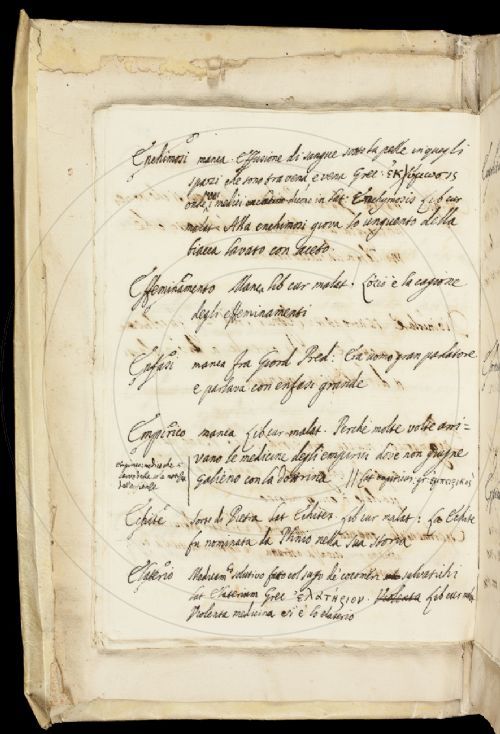 Enchimosi manca. Effusione di sangue sotto la pelle in quegli
spazi che sono fra vena, e vena Grec.
onde i medici dicono in lat. Enchymosis Lib cur
malat. Alla enchimosi giova lo unguento della
biacca lavato con l'aceto.
Effeminamento Manca lib cur malat. Cotto è la cagione
degli effeminamenti
Enfasi manca fra Giord. Pred. Era uomo gran parlatore
e parlava con enfasi grande
Empirico manca Lib cur malat. Perchè molte volte arri-
vano le medicine degli empirici dove non giugne
Galieno con la dottrina
Echite Sorte di Pietra lat Echites Lib cur malat: La Echite
fu nominata da Plinio nella sua storia
Elaterio Medicam.o solutivo fatto col sugo de' cocomeri salvatichi
lat Elaterium Grec ἐλατήριον. Lib cur mal.
Violenta medicina si è lo elaterio